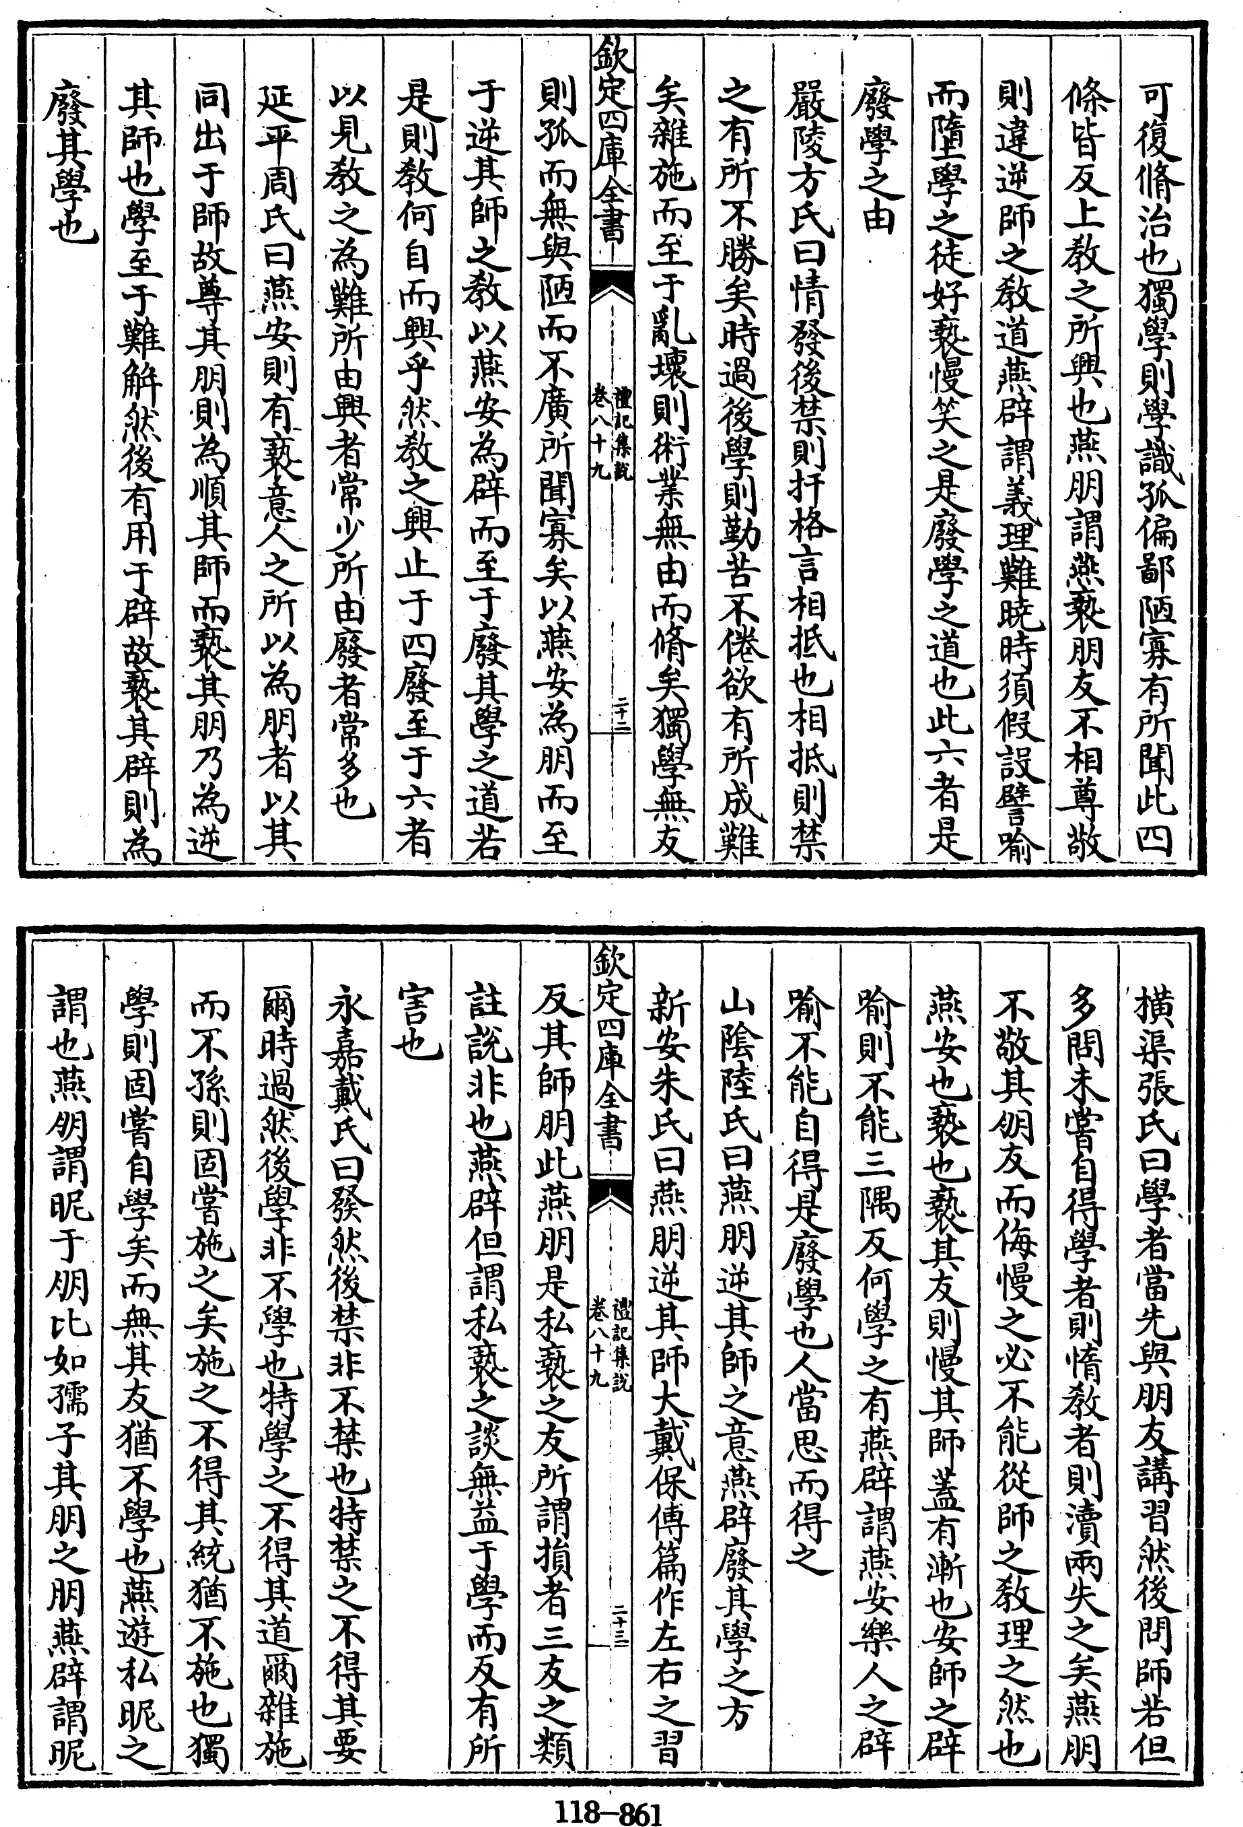 可復脩治也獨學則學識孤偏鄙陋寡有所聞此四
條皆反上教之所興也燕朋謂燕䙝朋友不相尊敬
則違逆師之教道燕辟謂義理難曉時須假設譬喻
而墮學之徒好䙝慢笑之是廢學之道也此六者是
廢學之由
嚴陵方氏曰情發後禁則扞格言相抵也相抵則禁
之有所不勝矣時過後學則勤苦不倦欲有所成難
矣雜施而至于亂壞則術業無由而脩矣獨學無友
欽定四庫全書
禮記集說
卷八十九
二十二
則孤而無與陋而不廣所聞寡矣以燕安為朋而至
于逆其師之教以燕安為辟而至于廢其學之道若
是則教何自而興乎然教之興止于四廢至于六者
以見教之為難所由興者常少所由廢者常多也
延平周氏曰燕安則有䙝意人之所以為朋者以其
同出于師故尊其朋則為順其師而䙝其朋乃為逆
其師也學至于難解然後有用于辟故䙝其辟則為
廢其學也
橫渠張氏曰學者當先與朋友講習然後問師若但
多問未嘗自得學者則惰教者則瀆兩失之矣燕朋
不敬其朋友而侮慢之必不能從師之教理之然也
燕安也䙝也䙝其友則慢其師蓋有漸也安師之辟
喻則不能三隅反何學之有燕辟謂燕安樂人之辟
喻不能自得是廢學也人當思而得之
山陰陸氏曰燕朋逆其師之意燕辟廢其學之方
新安朱氏曰燕朋逆其師大戴保傅篇作左右之習
欽定四庫全書
禮記集說
卷八十九
二十三
反其師朋此燕朋是私䙝之友所謂損者三友之類
註說非也燕辟但謂私䙝之談無益于學而反有所
害也
永嘉戴氏曰發然後禁非不禁也特禁之不得其要
爾時過然後學非不學也特學之不得其道爾雜施
而不孫則固嘗施之矣施之不得其統猶不施也獨
學則固嘗自學矣而無其友猶不學也燕遊私昵之
謂也燕朋謂昵于朋比如孺子其朋之朋燕辟謂昵
118-861